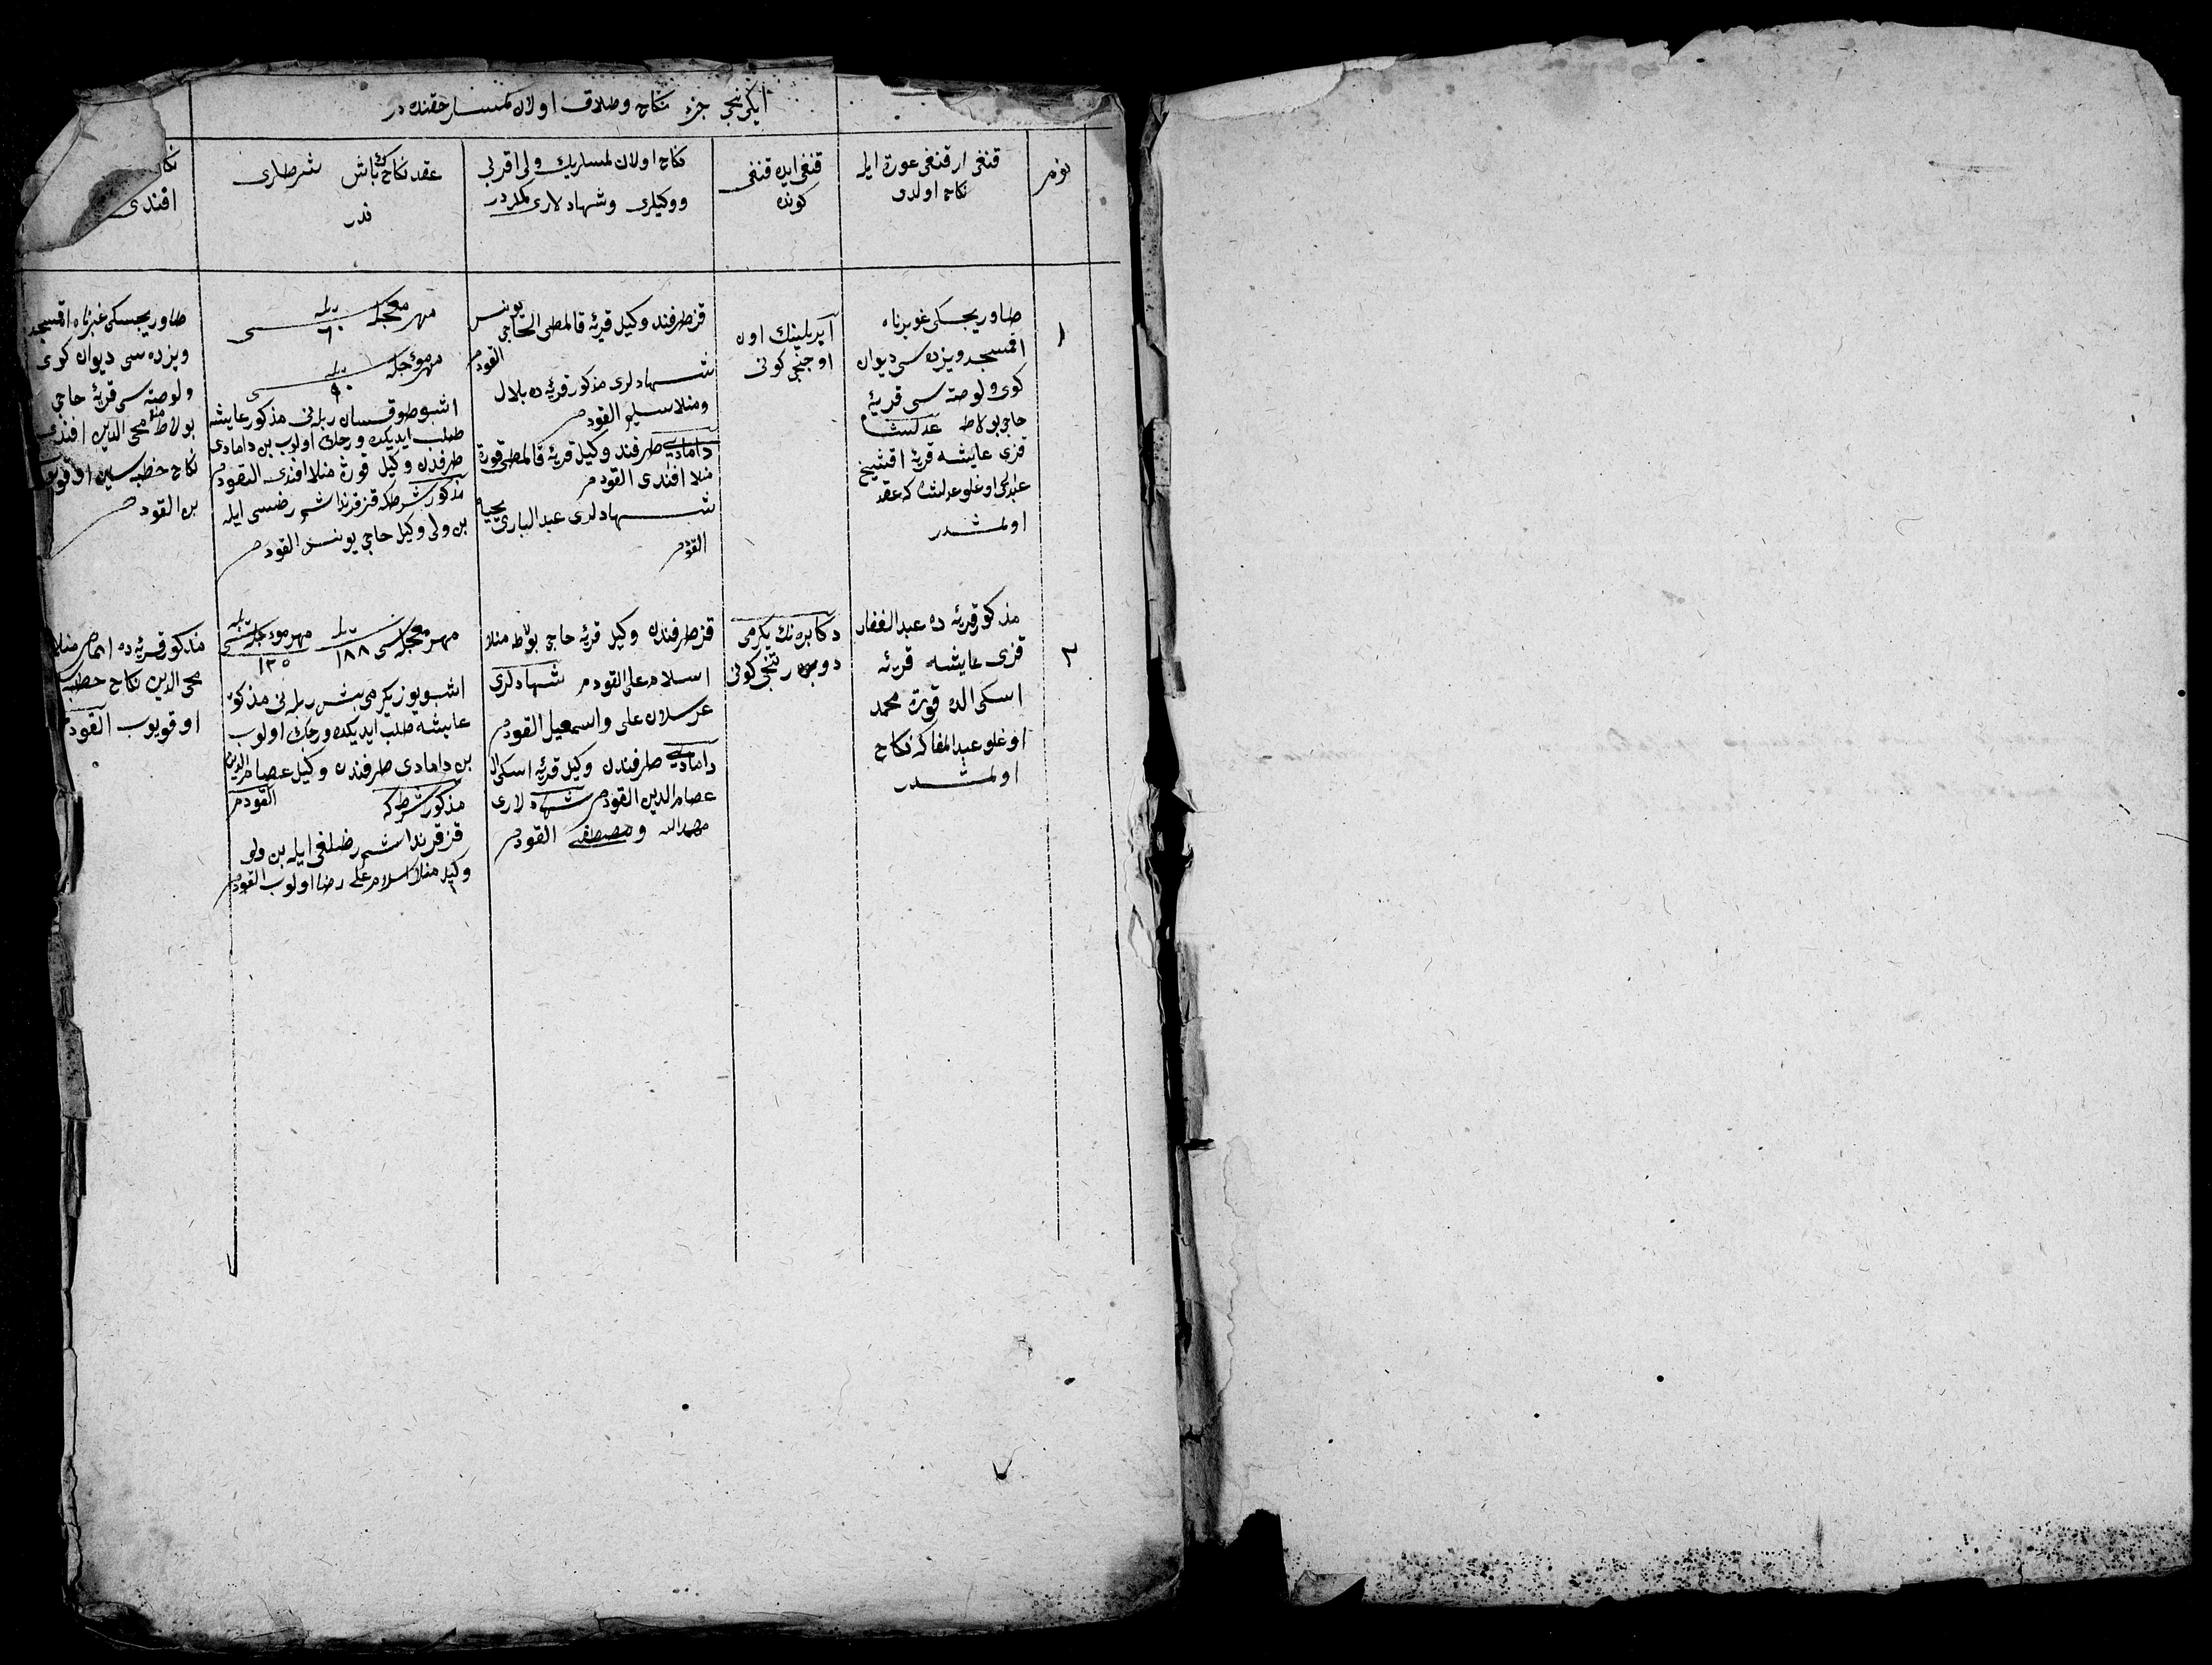 ایکنجی جزء نکاح وطلاق اولان کمسنه‌لر حقنده‌در
نومر
قنغی ار قنغی عورة ایله
نکاح اولدی
قنغی ایده قنغی
کونده
نکاح اولان کمسه‌لریك ولی اقربی
ووکیلری وشهادلاری کملردر
عقد نکاحڭ باش شرطلری
ندر
نکاح
افندی
۱
طاوریچسکی غوبرناه
اقمسجد ویزده‌سی دیوان
کوی ولوصته‌سی قریهٔ
حاجی بولاط
قزی عایشه قریهٔ اقشیخ
اوغلو عقد
اولمشدر
آپریلینڭ اون
اوچنجی کونی
قز طرفندن وکیل قریهٔ قالمطی الحاجی یونس
القودم
شهادلری مذکور قریه‌ده بلال
ومنلا القودم
دامادی طرفندن وکیل قریهٔ قالمطی قورة
منلا افندی القودم
شهادلری عبدالباری یحیا
القودم
مهر معجله‌سی ربله ٦٠
مهر مؤجله‌سی ربله ٩٠
اشبو طوقسان ربله‌نی مذکور عایشه
طلب ایدیکده ویرجك اولوب بن دامادی
طرفندن وکیل قورة منلا افندی القودم
مذکور شرطکه قز قرنداشم رضسی ایله
بن ولی وکیل حاجی یونس القودم
طاوریچسکی غبرناه اقمسجد
ویزده‌سی دیوان کوی
ولوصته‌سی قریهٔ حاجی
بولاط منلا محی الدین افندی
نکاح خطبه‌سین اوقویوب
بن القودم
۲
مذکور قریه‌ده عبدالغفار
قزی عایشه قریهٔ
اسکی الده قورة محمد
اوغلو نکاح
اولمشدر
دکابره‌نك یکرمی
کونی
قز طرفندن وکیل قریهٔ حاجی بولاط منلا
اسلام علی القودم شهادلری
عرسلان علی واسمعیل القودم
دامادی طرفندن وکیل قریهٔ اسکی الده
عصام الدین القودم شهادلاری
ومصطفی القودم
مهر معجله‌سی ربله ١٨٨ مهر مؤجله‌سی ربله ١٢٥
اشبو یوز یکرمی بش ربله‌نی مذکور
عایشه طلب ایدیکده ویرجك اولوب
بن دامادی طرفندن وکیل عصام الدین
القودم
مذکور شرطکه
قز قرنداشم رضلغی ایله بن ولی
وکیل منلا اسلام علی رضا اولوب القودم
مذکور قریه‌ده امام منلا
محی الدین نکاح خطبه‌سی
اوقویوب القودم